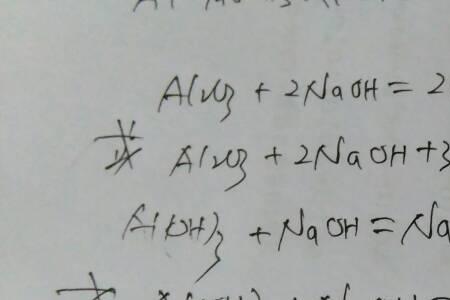 Al2O3 + 2NaOH = 2
Al2O3 + 2NaOH + 3
Al(OH)3 + NaOH = Na